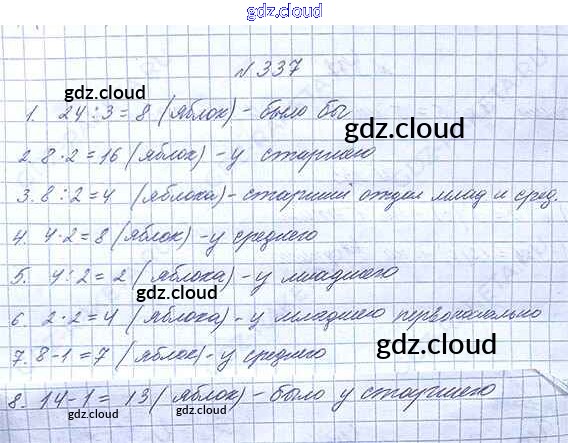 gdz.cloud
№ 337
gdz.cloud
1. 24 : 3 = 8 (яблок) - было бы
gdz.cloud
2. 8 · 2 = 16 (яблок) - у старшего
3. 8 : 2 = 4 (яблока) - старший отдал млад и сред.
4. 4 · 2 = 8 (яблок) - у среднего
5. 4 : 2 = 2 (яблока) - у младшего
gdz.cloud
6. 2 · 2 = 4 (яблока) - у младшего первоначально
gdz.cloud
7. 8 - 1 = 7 (яблок) - у среднего
8. 14 - 1 = 13 (яблок) - было у старшего
gdz.cloud gdz.cloud gdz.cloud